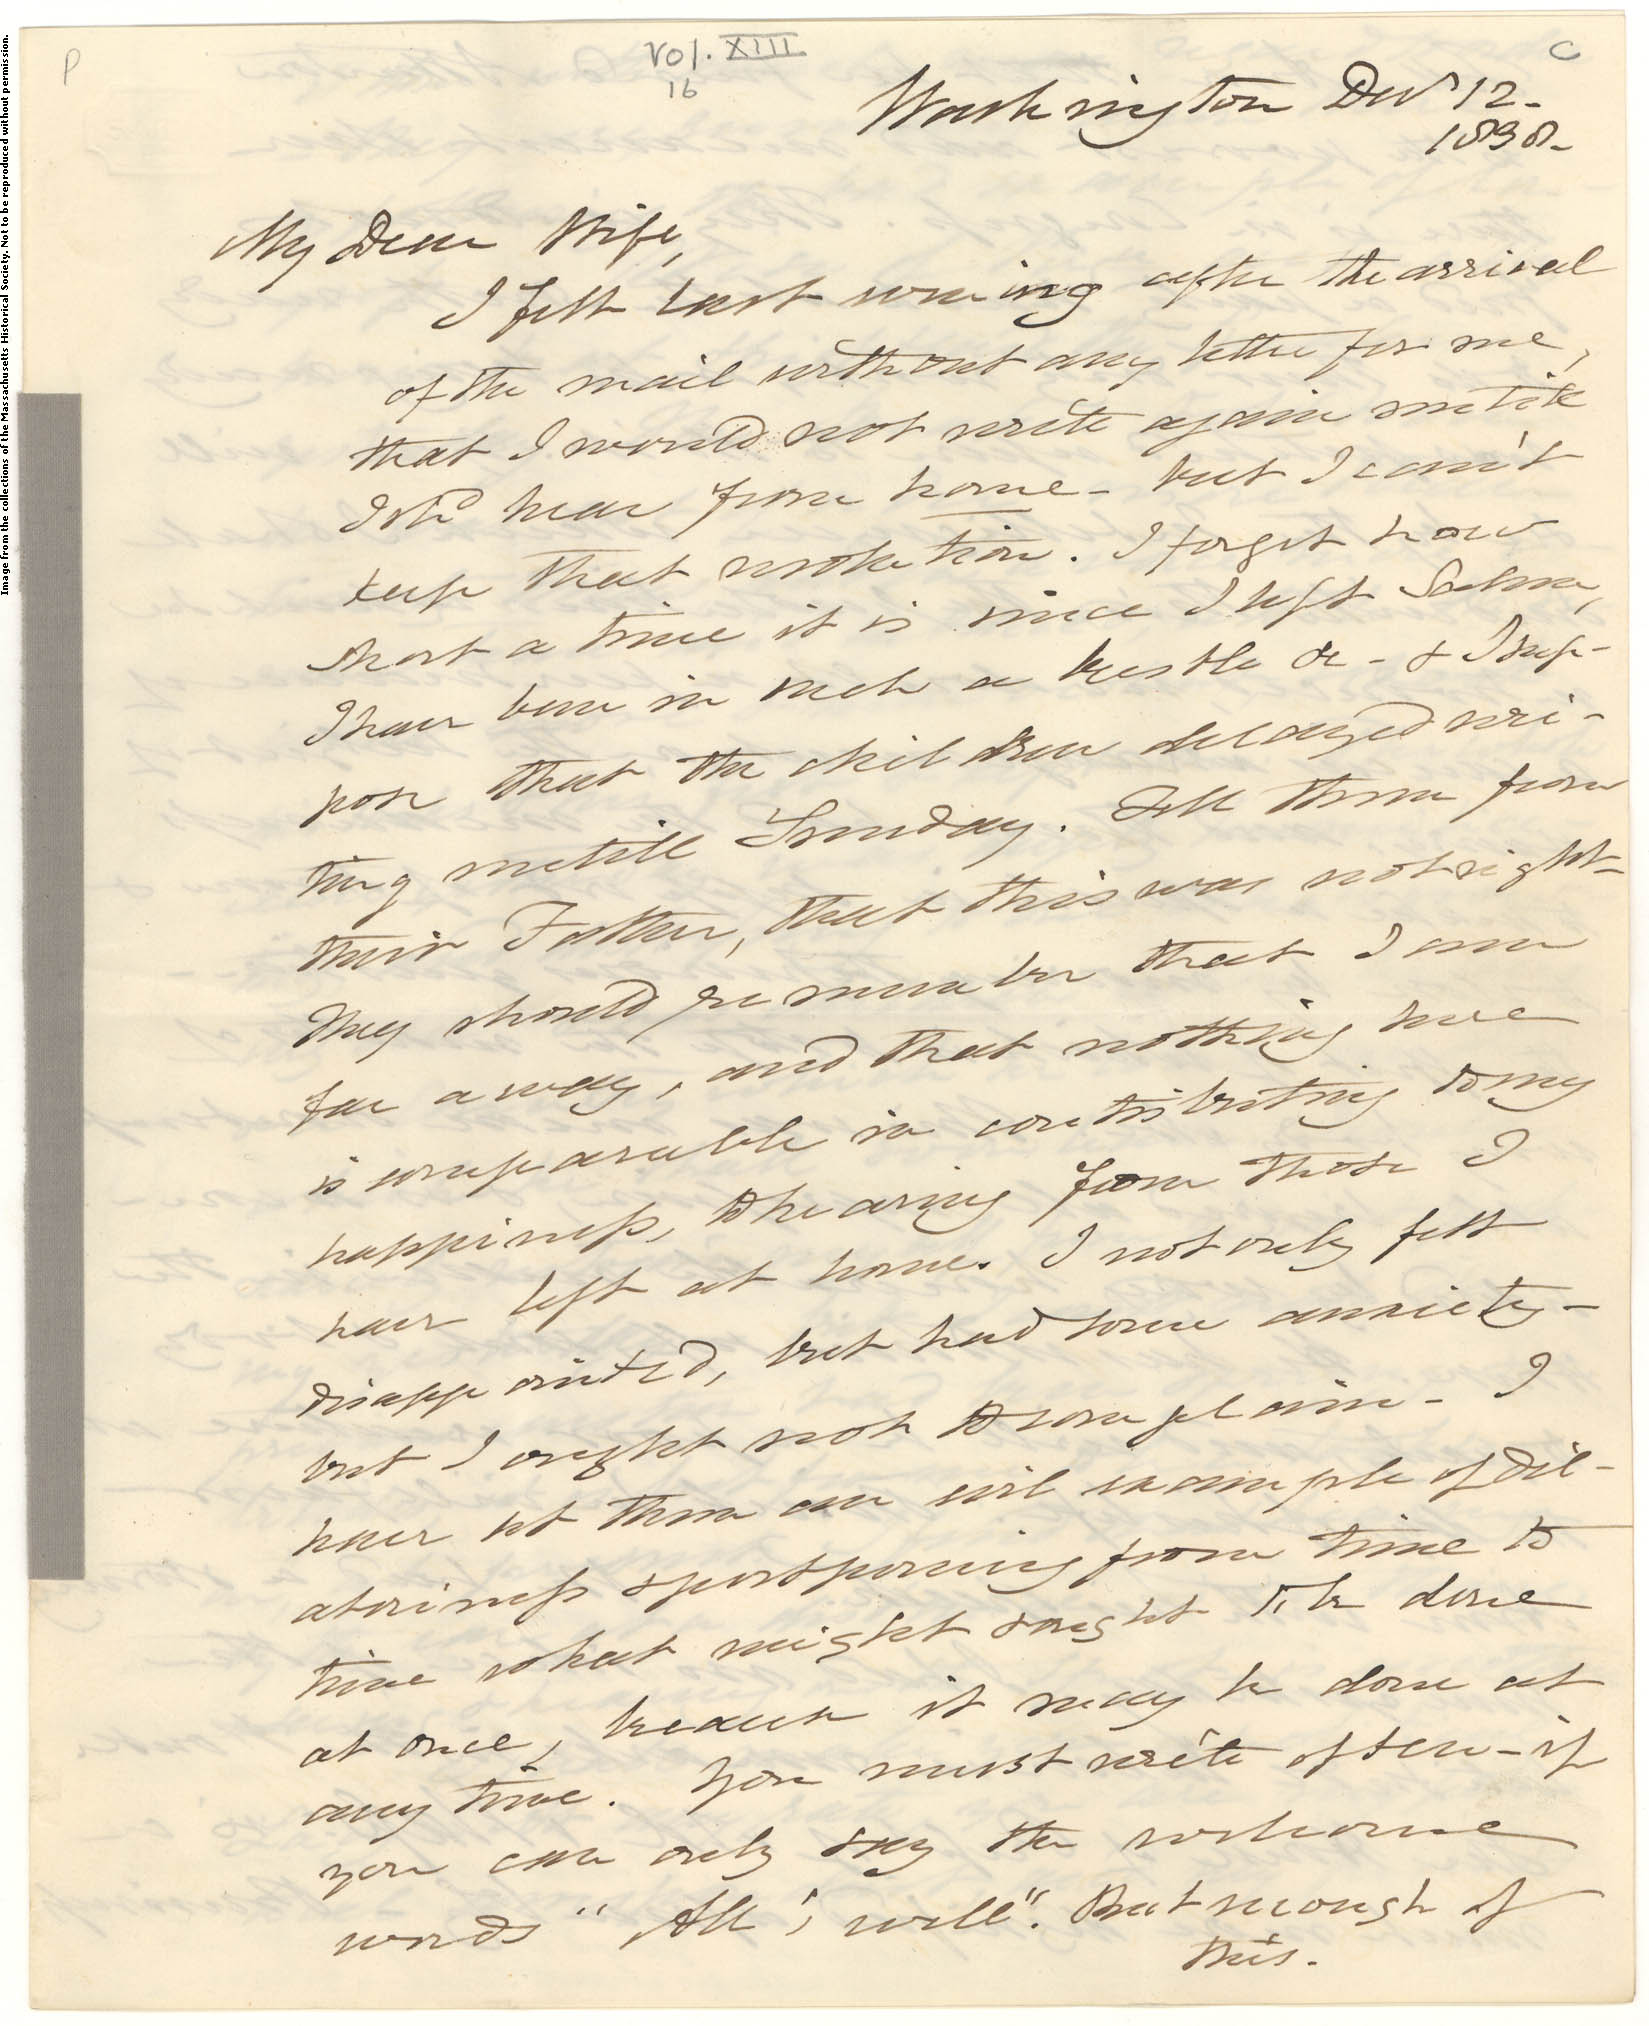 Image from the collections of the Massachusetts Historical Society. Not to be reproduced without permission.
P
C
Vol. XIII
16
Washington Decr 12-
1838-
My Dear Wife,
I felt last evening after the arrival
of the mail without any letter for me,
that I would not write again untill
I shd hear from home - but I can't
keep that resolution. I forget how
short a time it is since I left Salem,
I have been in such a bustle &c - & I sup-
pose that the children delayed wri-
ting untill Sunday. Tell them from
their Father, that this was not right-
They should remember that I am
far away, and that nothing here
is comparable in contributing to my
happiness, to hearing from those I
have left at home. I not only felt
disappointed, but had some anxiety-
but I ought not to complain - I
have set them an evil example of dil-
atoriness & postponing from time to
time what might & ought to be done
at once, because it may be done at
any time. You must write often - if
you can only say the welcome
words "All's well". But enough of
this.